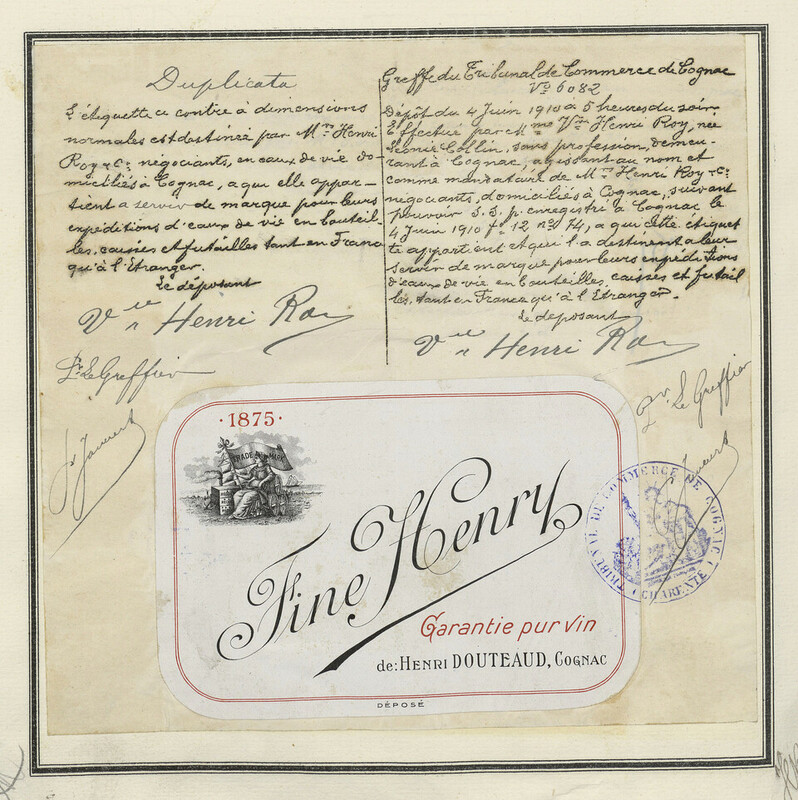 Duplicata
L'étiquette ci contre à dimensions
normales est destinée par Mrs Henri
Roy & Co négociants, en eaux de vie do-
miciliés à Cognac, a qui elle appar-
tient a servir de marque pour leurs
expéditions d'eaux de vie en bouteil-
les, caisses et futailles tant en France
qu'à l'Étranger.
Le déposant
Vve Henri Roy
Greffe du Tribunal de Commerce de Cognac
No 6082
Dépôt du 4 Juin 1910 à 5 heures du soir
Effectué par Mme Vve Henri Roy, née
Léonie Collin, sans profession, demeu-
rant à Cognac, agissant au nom et
comme mandataire de Mrs Henri Roy & Co
négociants, domiciliés à Cognac, suivant
pouvoir S.S.p. enregistré à Cognac le
4 Juin 1910 fo 12 no 74, a qui cette étiquet
te appartient et qui l'a destinent a leur
servir de marque pour leurs expéditions
d'eaux de vie en bouteilles, caisses et futail
les, tant en France qu'à l'Étranger.
Le déposant
Vve Henri Roy
Pr Le Greffier
Pr Le Greffier
·1875·
TRADE MARK
Fine Henry
Garantie pur vin
de: HENRI DOUTEAUD, COGNAC
DÉPOSÉ
TRIBUNAL DE COMMERCE DE COGNAC
(CHARENTE)